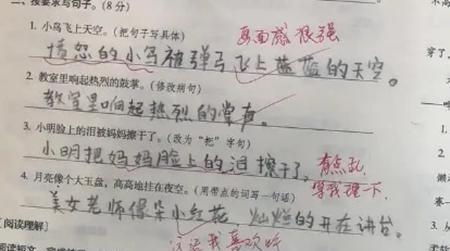 二、按要求写句子。(8分)
1. 小鸟飞上天空。(把句子写具体)
画面感很强
愤怒的小鸟被弹弓飞上蓝蓝的天空。
2. 教室里响起热烈的鼓掌。(修改病句)
教室里响起热烈的掌声。
3. 小明脸上的泪被妈妈擦干了。(改为“把”字句)
小明把妈妈脸上的泪擦干了。
有点乱
等我理一下
4. 月亮像个大玉盘,高高地挂在夜空。(用带点的词写一句话)
美女老师像朵小红花,灿烂的开在讲台。
[阅读理解]
这话我喜欢听